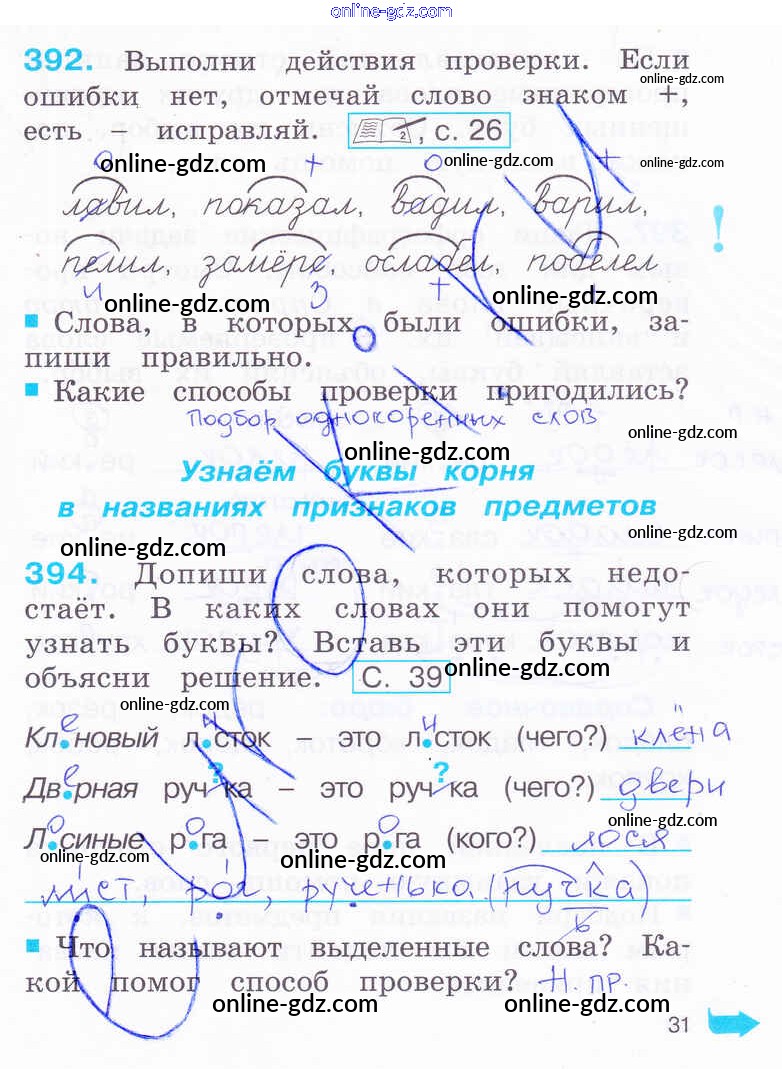 online-gdz.com
392. Выполни действия проверки. Если
online-gdz.com
ошибки нет, отмечай слово знаком +,
online-gdz.com
есть – исправляй. , с. 26
о + о +
online-gdz.com online-gdz.com online-gdz.com
лавил, показал, вадил, варил,
!
пелил, замёрс, ослабел, побелел.
и з + +
online-gdz.com online-gdz.com
Слова, в которых были ошибки, за-
пиши правильно.
Какие способы проверки пригодились?
Подбор однокоренных слов
online-gdz.com
Узнаём буквы корня
в названиях признаков предметов
online-gdz.com online-gdz.com
394. Допиши слова, которых недо-
стаёт. В каких словах они помогут
узнать буквы? Вставь эти буквы и
online-gdz.com
объясни решение. С. 39
online-gdz.com online-gdz.com
е и и
Кл.новый л.сток – это л.сток (чего?) клёна
е ? ?
Дв.рная руч ка – это руч ка (чего?) двери
о о о о
Л.синые р.га – это р.га (кого?) лося
online-gdz.com online-gdz.com online-gdz.com
лист, рог, рученька (ручка)
Что называют выделенные слова? Ка-
кой помог способ проверки? Н. пр.
online-gdz.com online-gdz.com
31